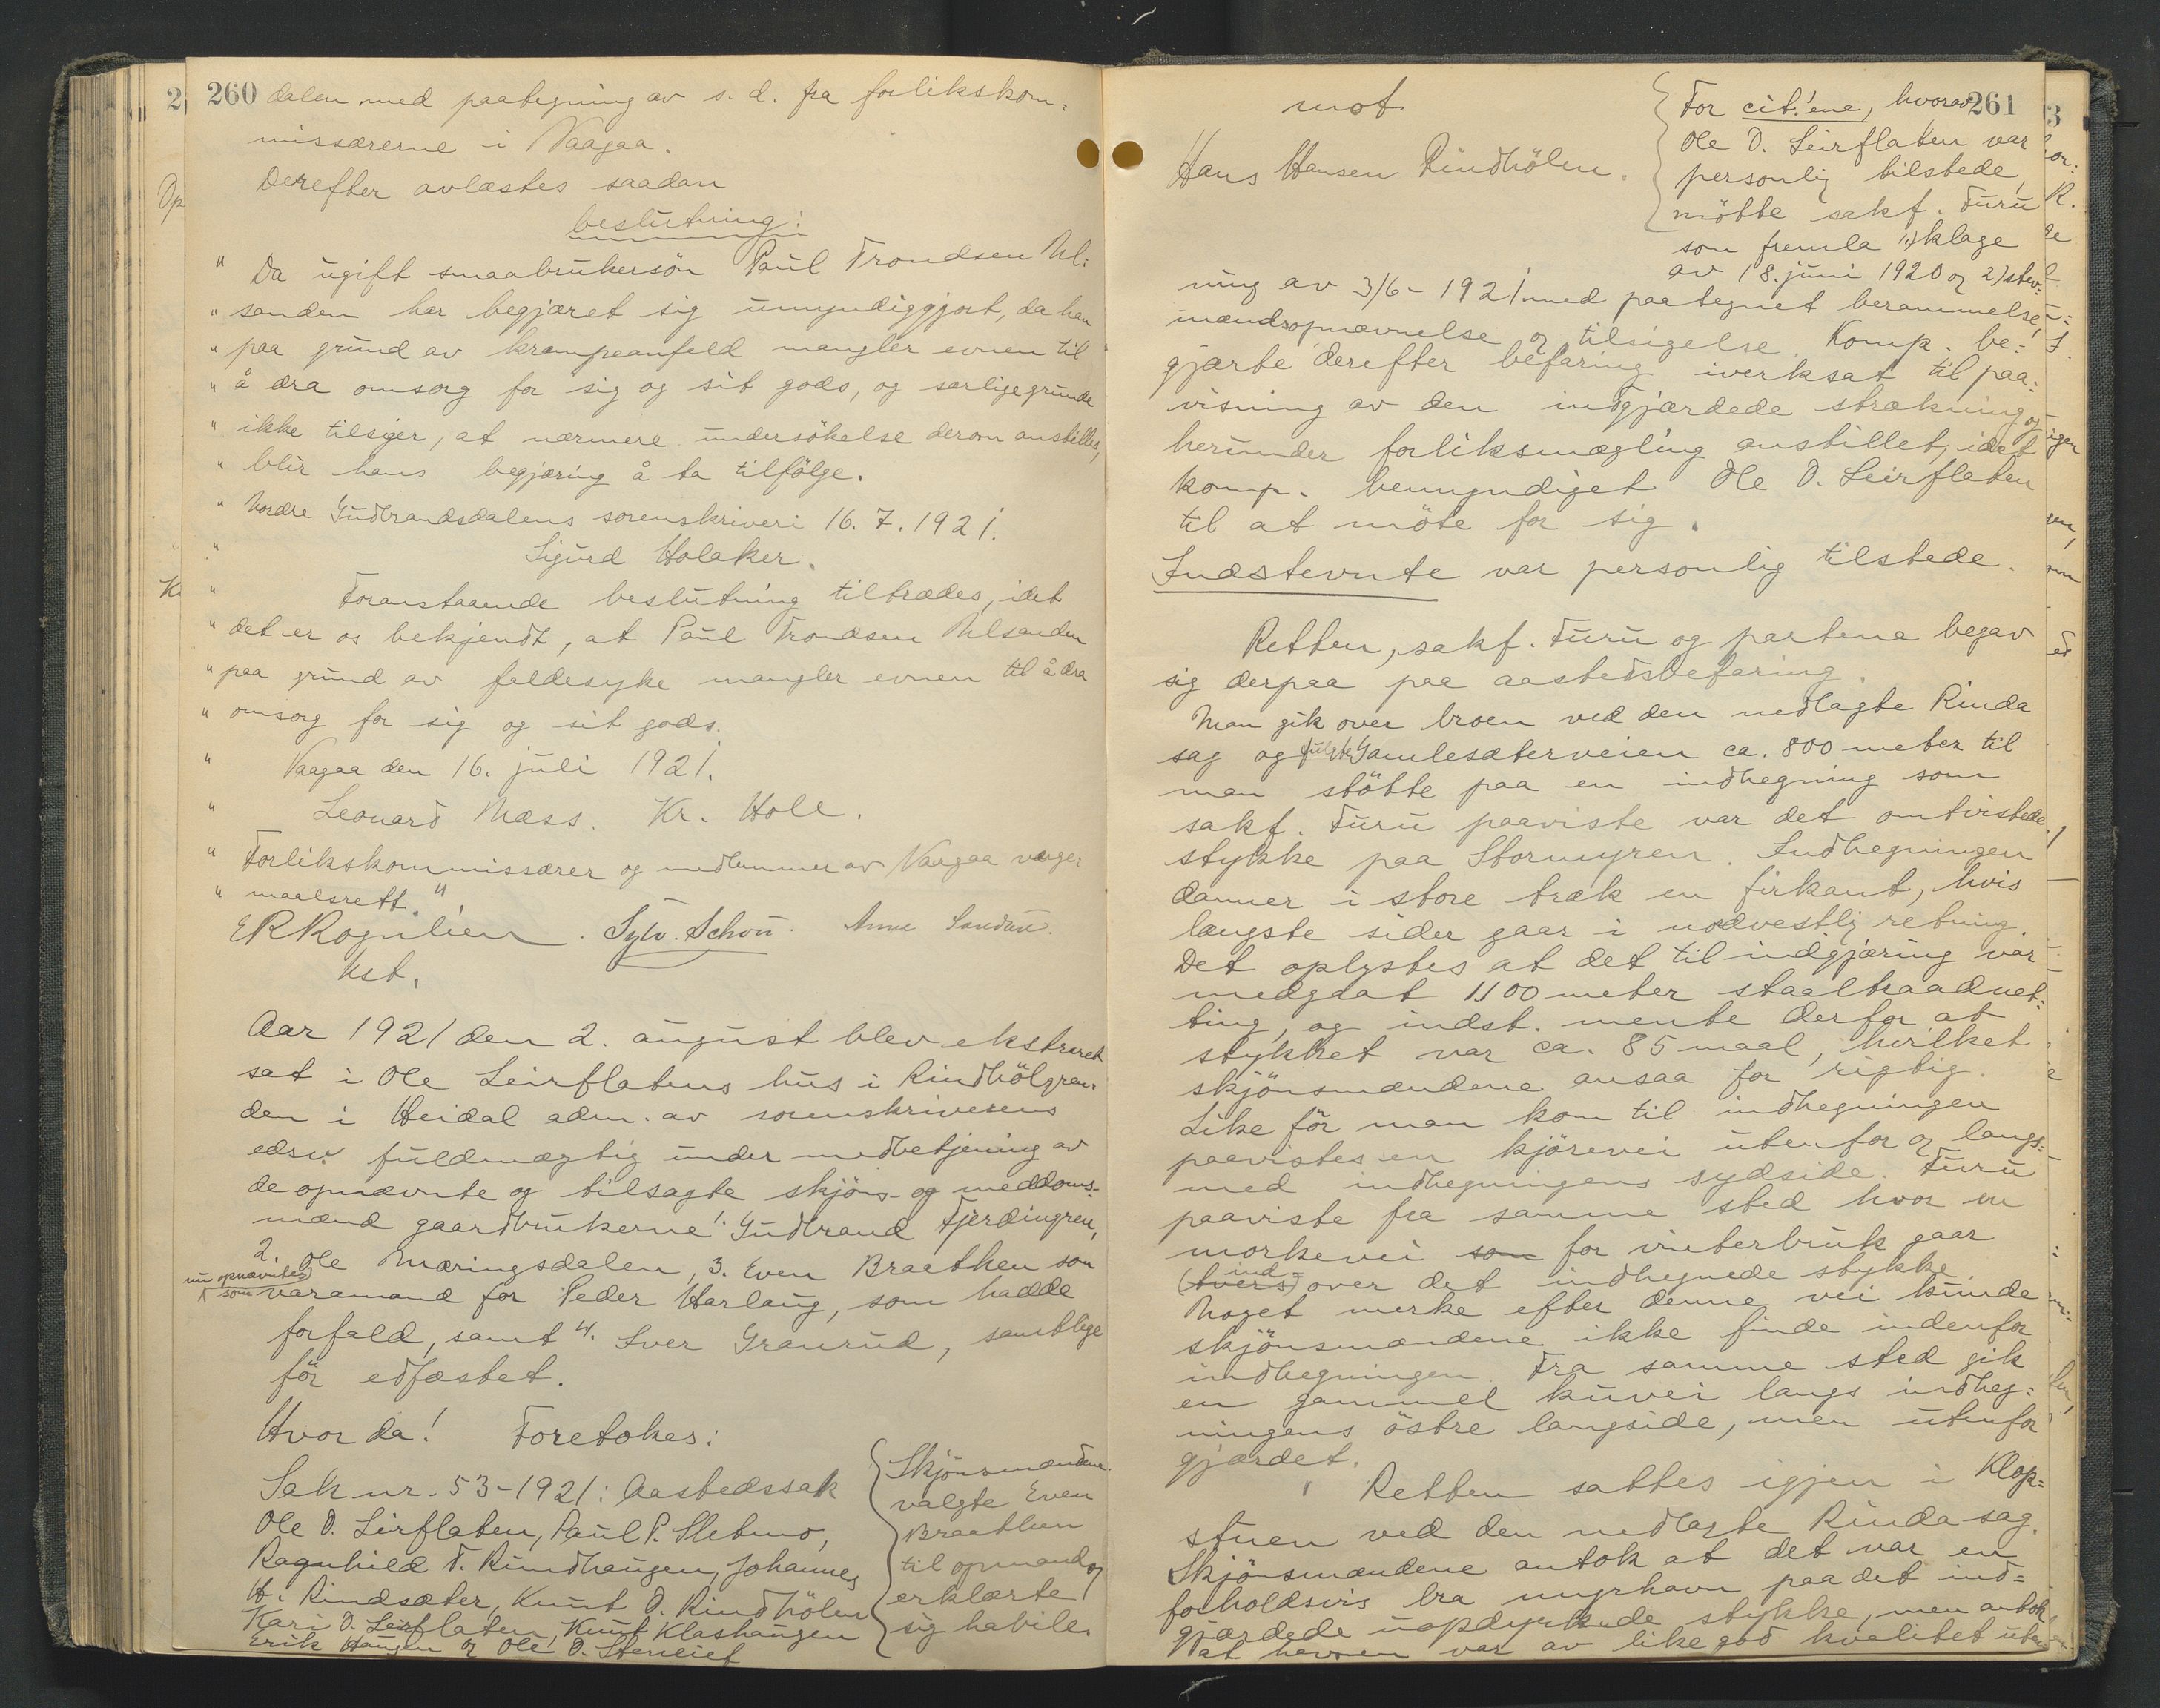 260 dalen med paategning av s. d. fra forlikskom=
missærerne i Vaagaa.
Derefter avlæstes saadan
beslutning:
" Da ugift smaabrukersön Paul Trondsen Ul=
" sanden har begjæret sig umyndiggjort, da han
" paa grund av krampeanfald mangler evnen til
" å dra omsorg for sig og sit gods, og særlige grunde
" ikke tilsiger, at nærmere undersökelse derom anstilles,
" blir hans begjæring å ta tilfölge.
" Nordre Gudbrandsdalens sorenskriveri 16. 7. 1921.
" Sigurd Holaker.
" Foranstaaende beslutning tiltrædes, idet
" det er os bekjendt, at Paul Trondsen Ulsanden
" paa grund av faldesyke mangler evnen til å dra
" omsorg for sig og sit gods.
" Vaagaa den 16. juli 1921.
" Leonard Næss. Kr. Hole.
" Forlikskommissærer og medlemmer av Vaagaa verge=
" maalsrett."
E R Rognlien. Sylv. Schou. Anne Sandau.
kst.
Aar 1921 den 2. august blev ekstraret
sat i Ole Leirflatens hus i Rindhölgren=
den i Heidal adm. av sorenskriverens
edsv. fuldmægtig under medbetjening av
de opnævnte og tilsagte skjöns- og meddoms=
mænd gaardbrukerne 1. Gudbrand Fjerdingren,
2. Ole Mæringsdalen, 3. Even Braathen som
nu opnævntes som varamand for Peder Harlaug, som hadde
forfald, samt 4. Iver Granrud, samtlige
för edfæstet.
Hvor da! Foretokes:
Sak nr. 53-1921: Aastedssak
Ole D. Leirflaten, Paul P. Sletmo,
Ragnhild T. Rundhaugen, Johannes
H. Rindsæter, Knut O. Rindhölen
Kari D. Leirflaten, Knut Klashaugen
Erik Haugen og Ole D. Steneiet
Skjönsmændene
valgte Even
Braathen
til opmand og
erklærte
sig habile.
261
mot
Hans Hansen Rindhölen.
For cit.'ene, hvorav
Ole D. Leirflaten var
personlig tilstede,
mötte sakf. Furu
som fremla 1.) klage
av 18. juni 1920 og 2) stev=
ning av 3/6 - 1921 med paategnet berammelse,
mændsopnævnelse og tilsigelse. Komp. be=
gjærte derefter befaring iverksat til paa=
visning av den indgjærdede strækning og
herunder forliksmægling anstillet, idet
komp. bemyndiget Ole D. Leirflaten
til at möte for sig.
Indstevnte var personlig tilstede.
Retten, sakf. Furu og partene begav
sig derpaa paa aastedsbefaring.
Man gik over broen ved den nedlagte Rinda
sag og fulgte Gamlesæterveien ca. 800 meter til
man stötte paa en indhegning som
sakf. Furu paaviste var det omtvistede
stykke paa Stormyren. Indhegningen
danner i store træk en firkant, hvis
længste sider gaar i nordvestlig retning.
Det oplystes at det til indgjæring var
medgaat 1100 meter staaltraadnet=
ting, og indst. mente derfor at
stykket var ca. 85 maal, hvilket
skjönsmændene ansaa for rigtig.
Like för man kom til indhegningen
paavistes en kjörevei utenfor og langs=
med indhegningens sydside. Furu
paaviste fra samme sted hvor en
morkevei som for vinterbruk gaar
(tvers) ind over det indhegnede stykke.
Noget merke efter denne vei kunde
skjönsmændene ikke finde indenfor
indhegningen. Fra samme sted gik
en gammel kuvei langs indheg=
ningens östre langside, men utenfor
gjærdet.
Retten sattes igjen i Klop=
stuen ved den nedlagte Rinda sag.
Skjönsmændene antok at det var en
forholdsvis bra myrhavn paa det ind=
gjærdede uopdyrkede stykke, men antok
at havnen var av like god kvalitet uten